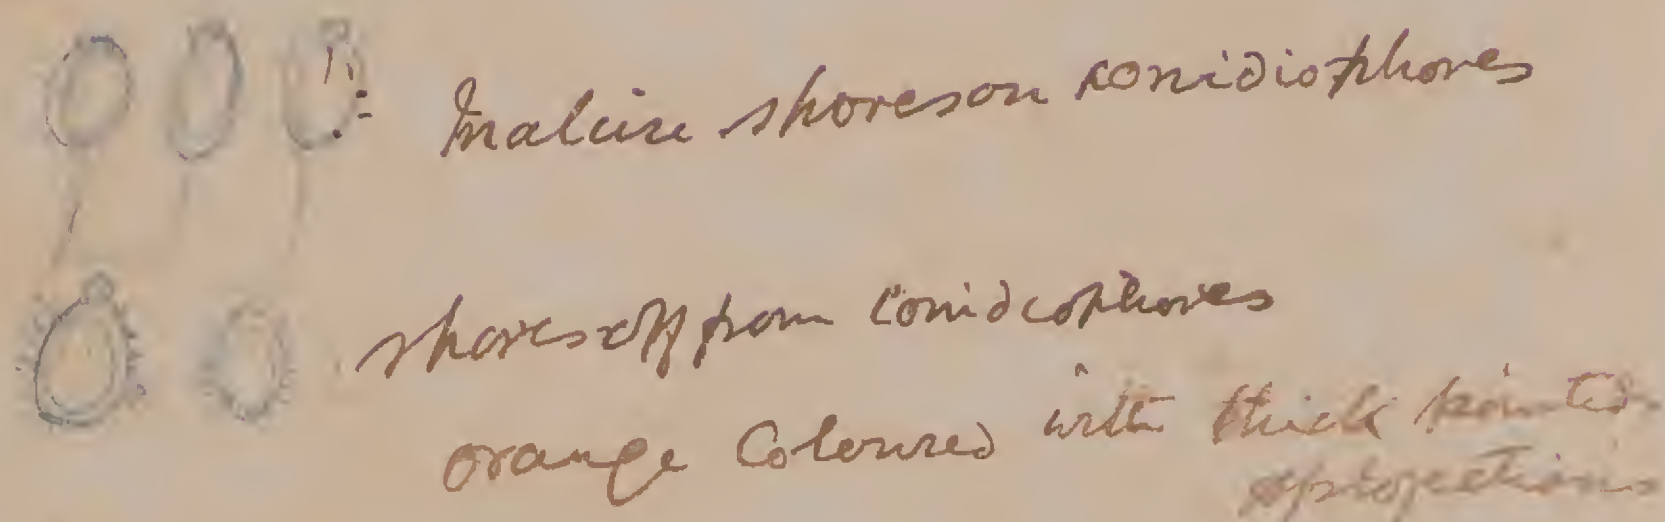 Mature spores on conidiophores
spores off from conidiophores
orange coloured with thick pointed
projections